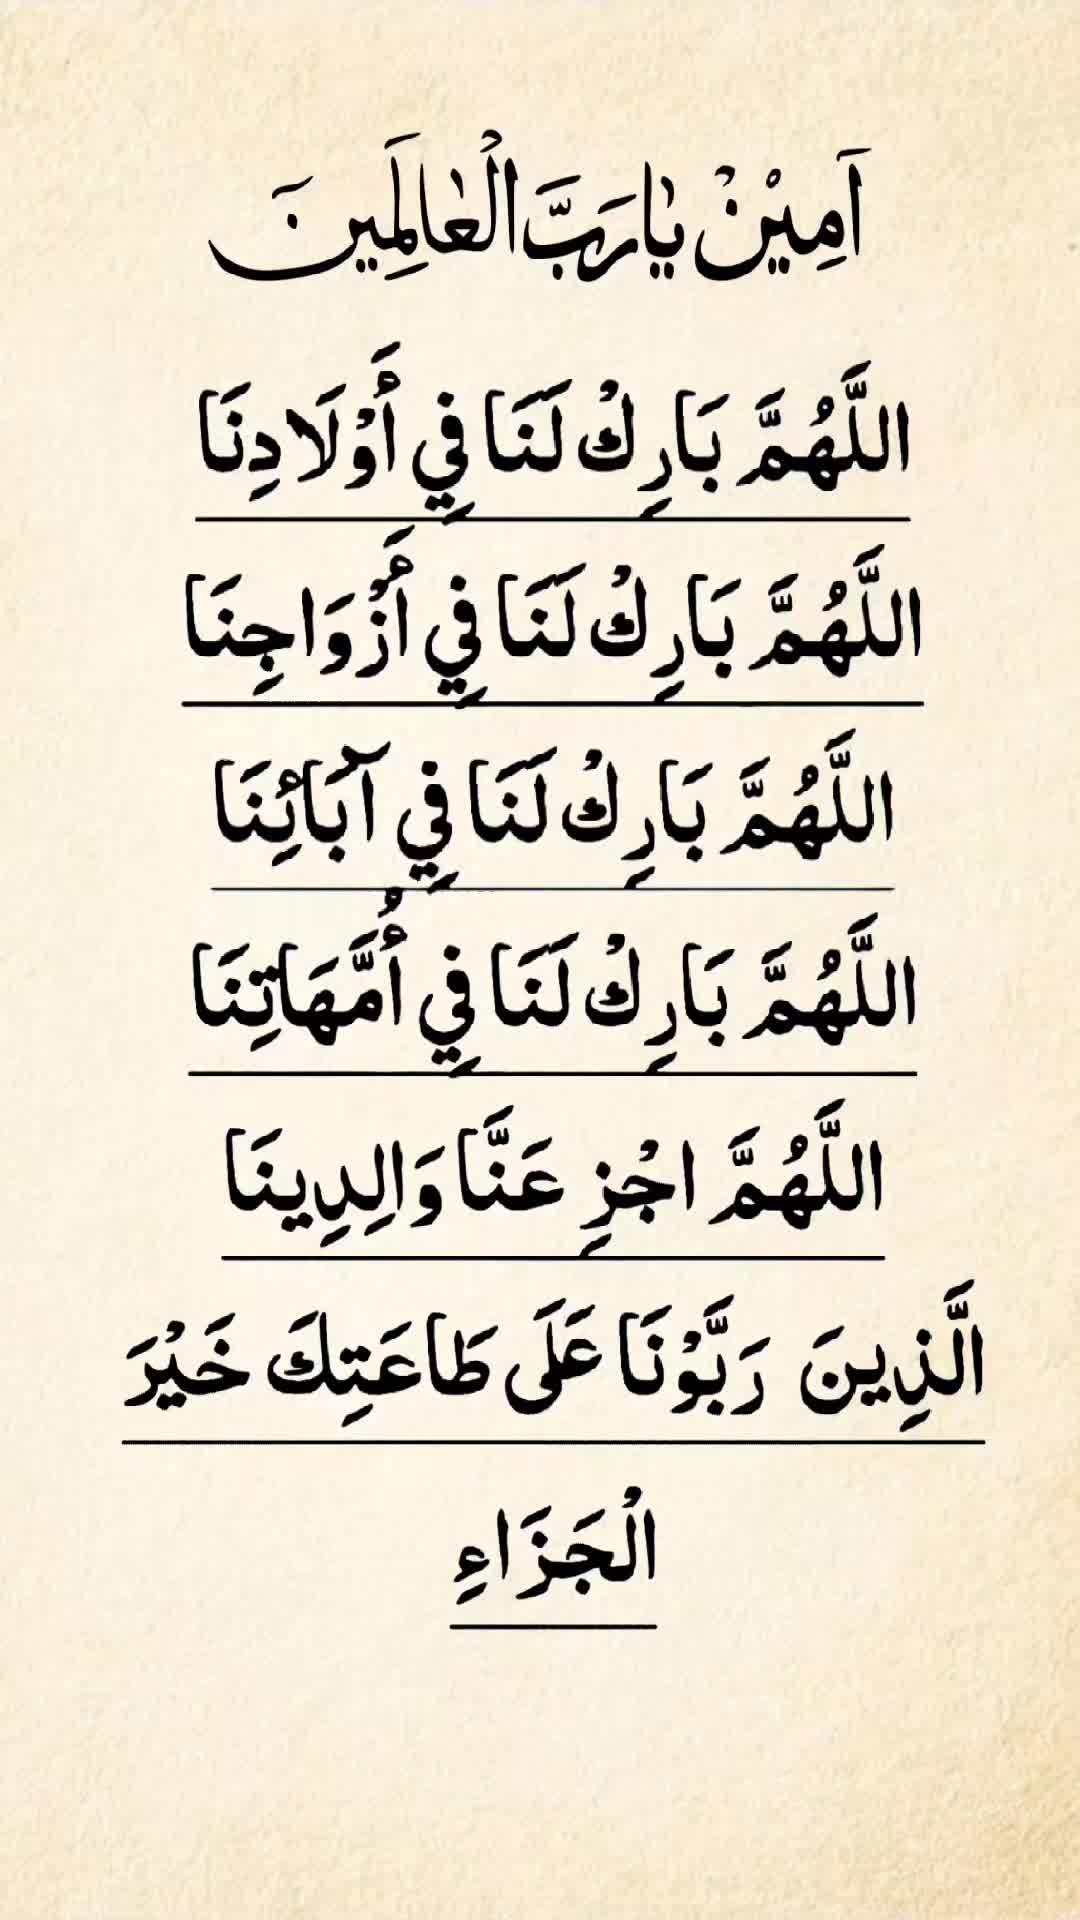 اَمِيْنْ يٰا رَبَّ الْعٰالَمِينَ
اللَّهُمَّ بَارِكْ لَنَا فِي أَوْلَادِنَا
اللَّهُمَّ بَارِكْ لَنَا فِي أَزْوَاجِنَا
اللَّهُمَّ بَارِكْ لَنَا فِي آبَائِنَا
اللَّهُمَّ بَارِكْ لَنَا فِي أُمَّهَاتِنَا
اللَّهُمَّ اجْزِ عَنَّا وَالِدِينَا
الَّذِينَ رَبَّوْنَا عَلَى طَاعَتِكَ خَيْرَ
الْجَزَاءِ